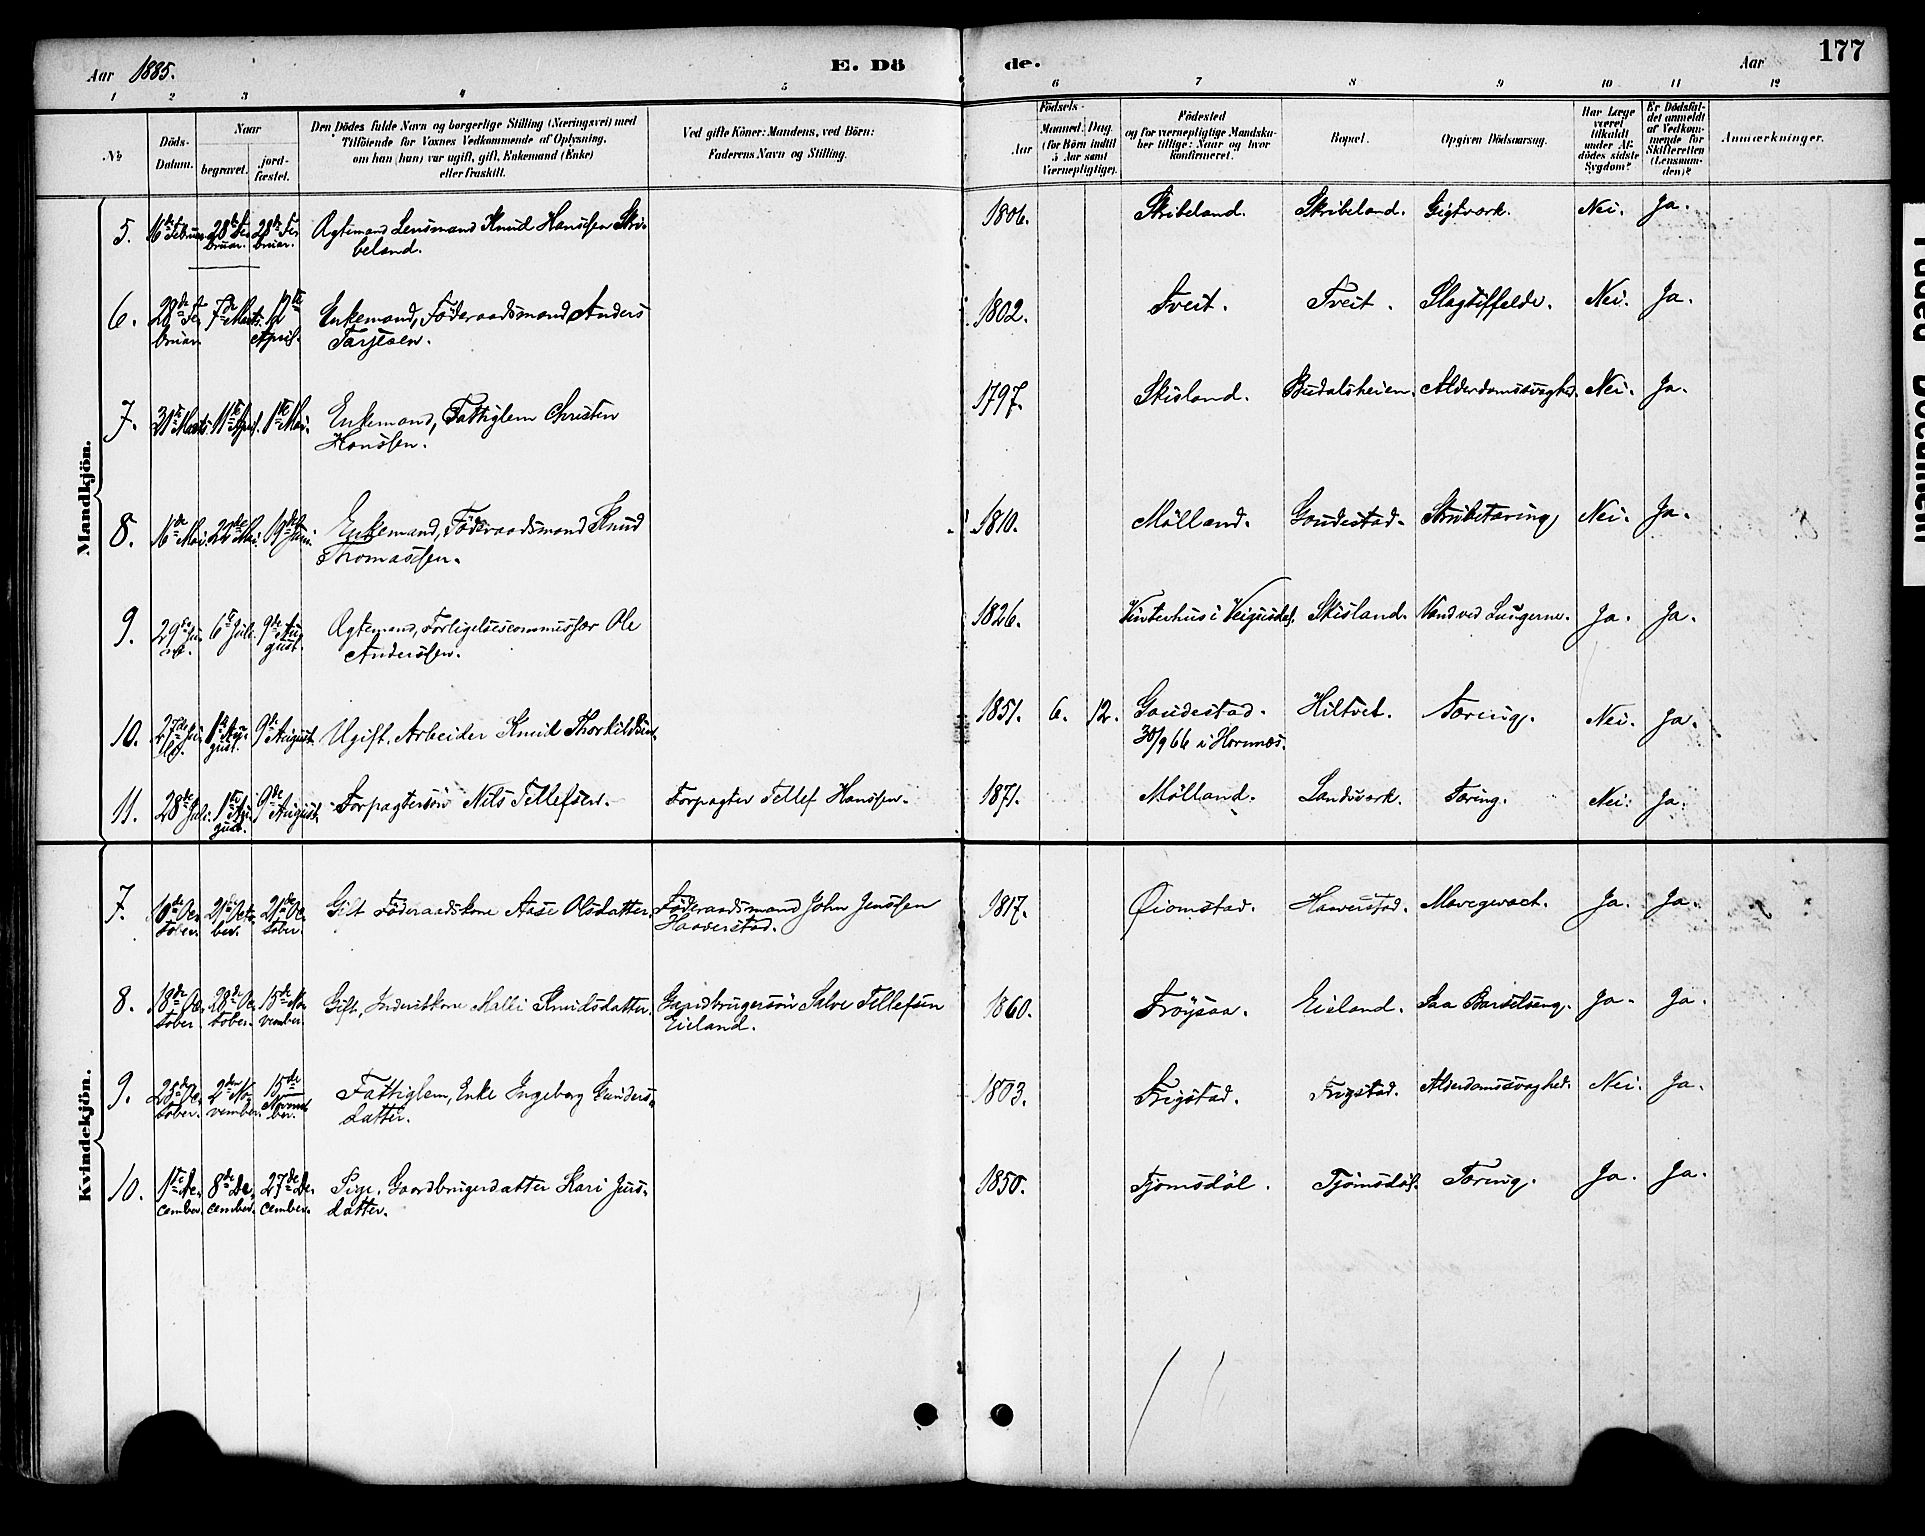 Aar 1885. E. Dö de. Aar 177
1 2 3 4 5 6 7 8 9 10 11 12
№ Döds-Datum. Naar begravet. jordfæstet. Den Dödes fulde Navn og borgerlige Stilling (Næringsvei) med Tilföiende for Voxnes Vedkommende af Oplysning, om han (hun) var ugift, gift, Enkemand (Enke) eller fraskilt. Ved gifte Koner: Mandens, ved Börn: Faderens Navn og Stilling. Födsels- Aar Maaned. Dag. (for Börn indtil 5 Aar samt Værnepligtige). Födested og for værnepligtige Mandskaber tillige: Naar og hvor konfirmeret. Bopæl. Opgiven Dödsaarsag. Har Læge været tilkaldt under Afdödes sidste Sygdom? Er Dödsfaldet anmeldt af Vedkommende for Skifteretten (Lensmanden)? Anmærkninger.
Mandkjön.
5. 16de Februar 28de Februar. 28de Februar. Ægtemand Lensmand Knud Hanssen Skribeland. 1806. Skribeland. Skribeland. Gigtværk. Nei. Ja.
6. 28de Februar. 7de Marts. 12te April. Enkemand, Föderaadsmand Anders Tarjesen. 1802. Tveit. Tveit. Slagtilfelde. Nei. Ja.
7. 31te Marts. 11te April. 1ste Mai. Enkemand, Fattiglem Christen Hanssen. 1797. Skisland. Budalsheien. Alderdomssvaghed. Nei. Ja.
8. 16de Mai. 22de Mai. 19de Juni. Enkemand, Föderaadsmand Knud Thomassen. 1810. Mölland. Gaudestad. Strubetæring, Nei. Ja.
9. 29de Juni. 6te Juli. 9de August. Ægtemand, Forligelsescommissær Ole Anderssen. 1826. Vinterhus i Veigusdal. Skisland. Vand ved Lungerne. Ja. Ja.
10. 27de Juli. 1ste August. 9de August. Ugift, Arbeider Knud Thorkildsen. 1851. 6. 12. Gaudestad. 30/9 66 i Hornnæs. Hiltvet. Tæring. Nei. Ja.
11. 28de Juli. 1ste August. 9de August. Forpagtersön Nils Tellefsen. Forpagter Tellef Hanssen. 1871. Mölland. Landsværk. Tæring. Nei. Ja.
Kvindekjön.
7. October. 21de October. 21de October. Gift Föderaadskone Aase Olsdatter. Föderaadsmand John Jenssen Haaverstad. 1817. Øiomstad. Haaverstad. Mavegevæct. Ja. Ja.
8. 18de October. 28de October. 15de November. Gift, Inderstkone Malli Knudsdatter. Gaardbrugersön Salve Tellefsen Eieland. 1860. Fröysaa. Eieland. Paa Barselseng. Ja. Ja.
9. 25de October. 2den November. 15de November. Fattiglem, Enke Ingeborg Gundersdatter. 1803. Frigstad. Frigstad. Alderdomssvaghed. Nei. Ja.
10. 1ste December. 8de December. 27de December. Pige, Gaardbrugerdatter Kari Jensdatter. 1850. Tjomsdöl. Tjömsdöl. Tæring. Ja. Ja.